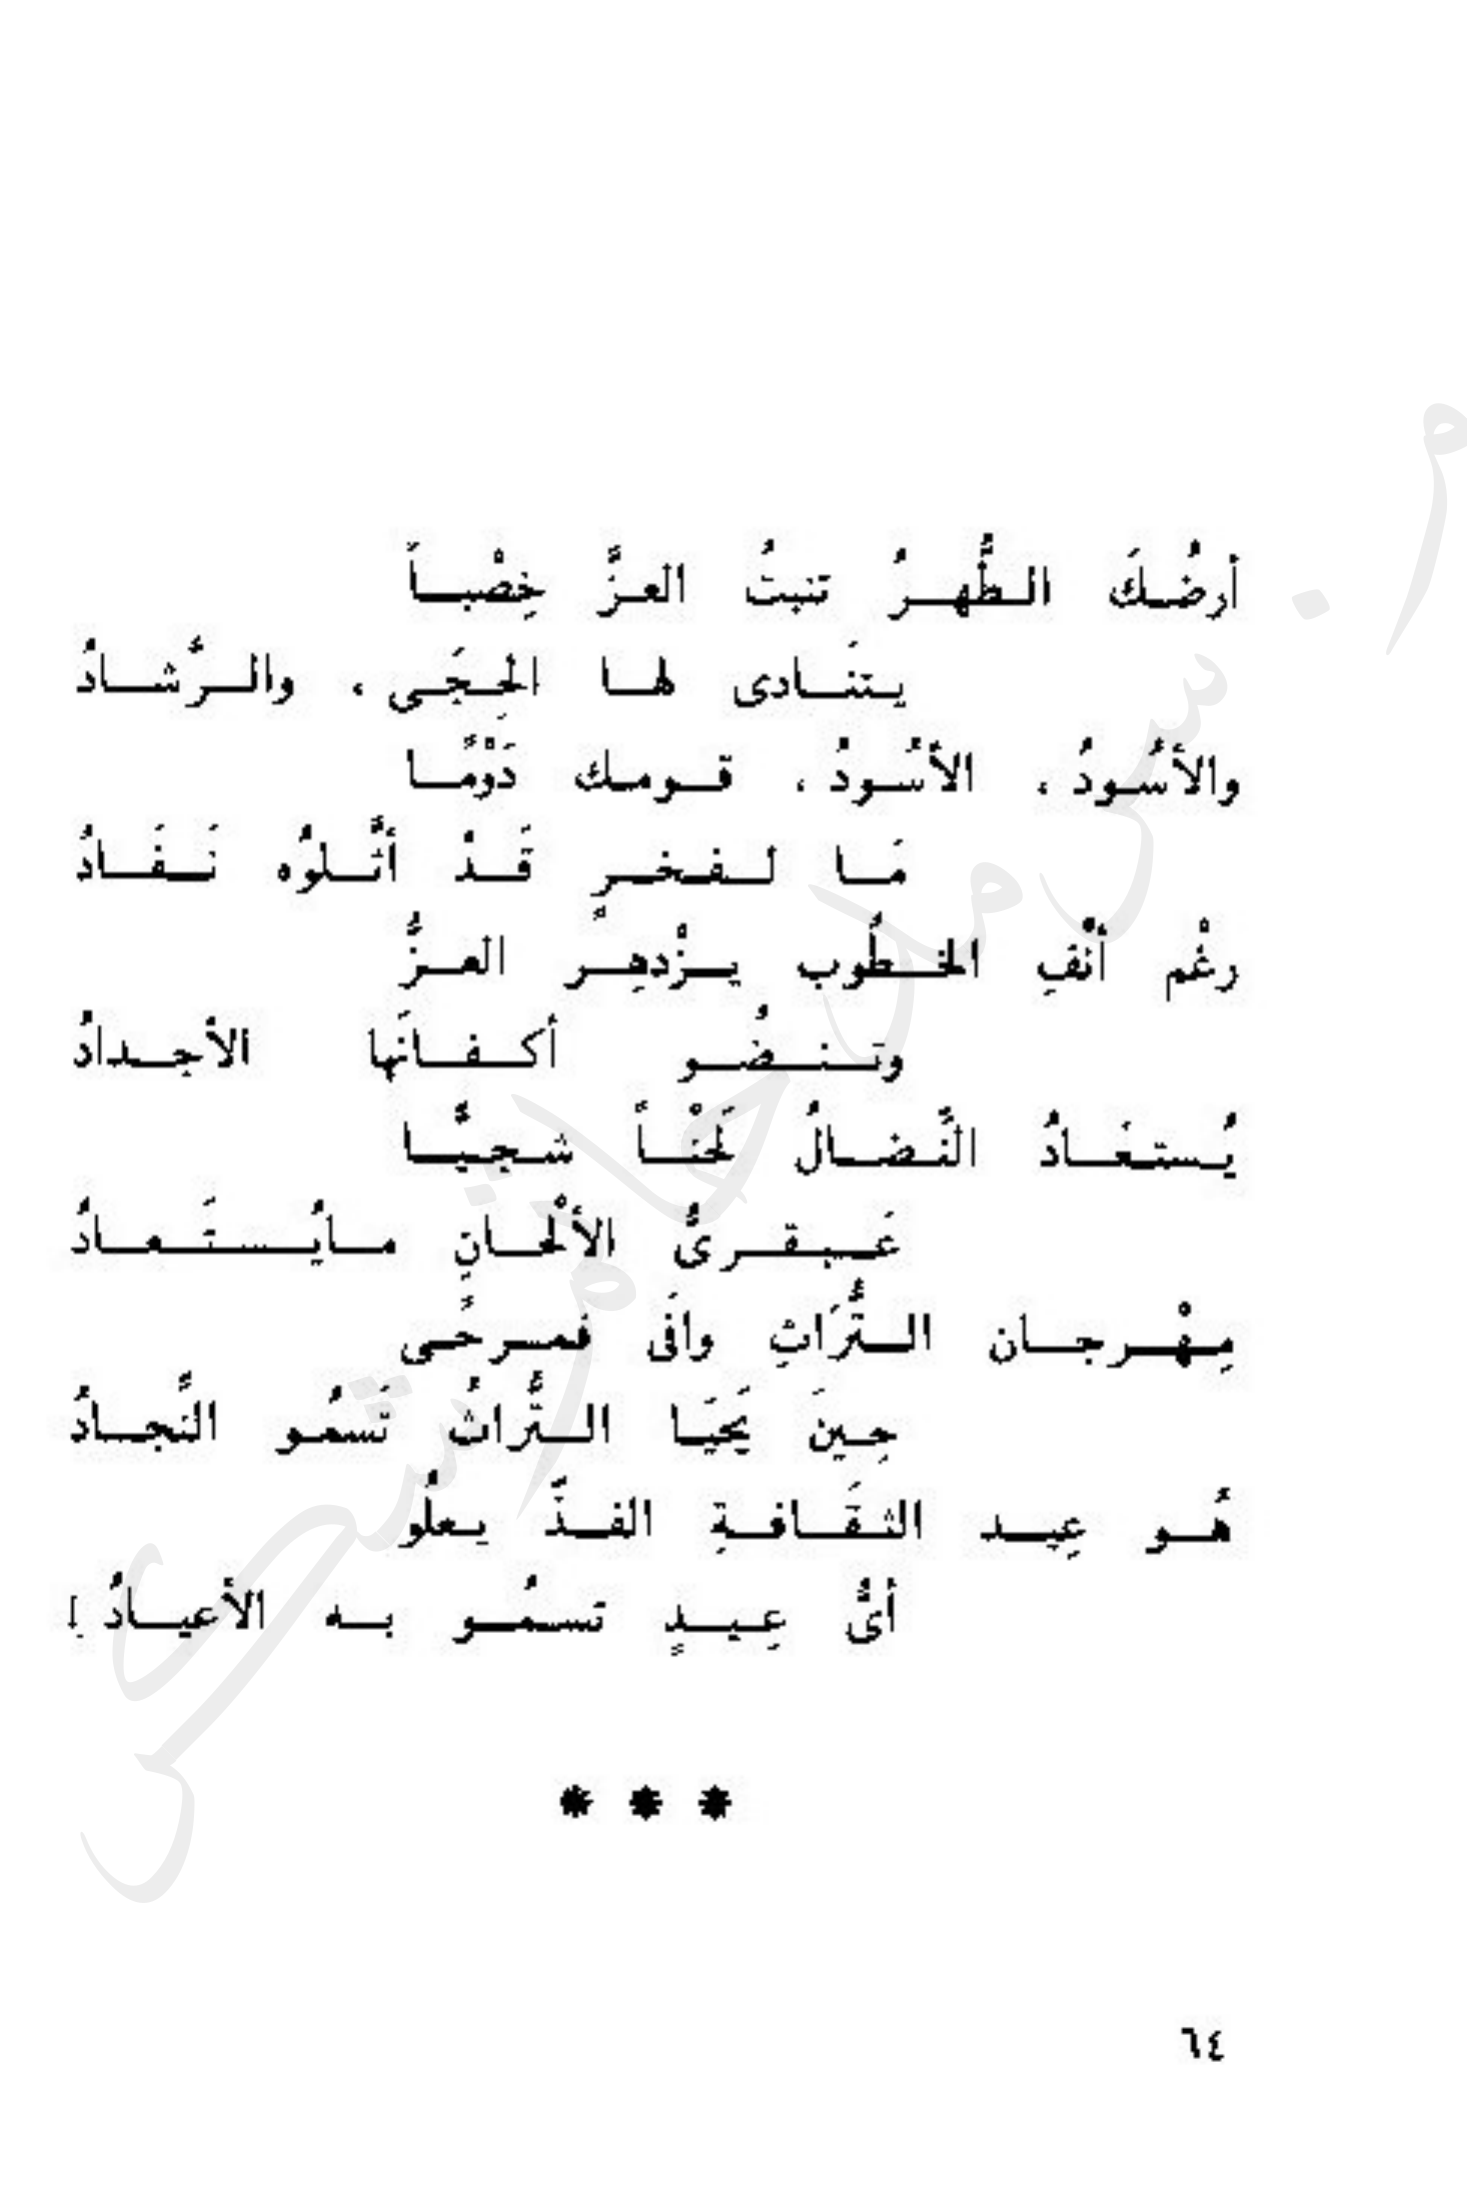 أرضُكَ الطُّهرُ تنبتُ العزَّ خِصْباً
يتنَادى لها الحِجَى ، والرَّشادُ
والأسُودُ ، الأسُودُ ، قومك دَوْمًا
مَا لفخرٍ قَدْ أثَّلوُه نَفَادُ
رغْم أنْفِ الخطُوب يزْدهِرُ العزُّ
وتنضُو أكفانَها الأجدادُ
يُستعَادُ النَّضالُ لَحْناً شجيًّا
عَبقرىُّ الألْحانِ مايُستَعادُ
مِهْرجان التُّرَاثِ وافَى فمرحًى
حِينَ يَحيَا التُّراثُ تَسمُو النَّجادُ
هُو عِيد الثقَافةِ الفذَّ يعلُو
أىُّ عِيدٍ تسمُو به الأعيادُ !
* * *
٦٤